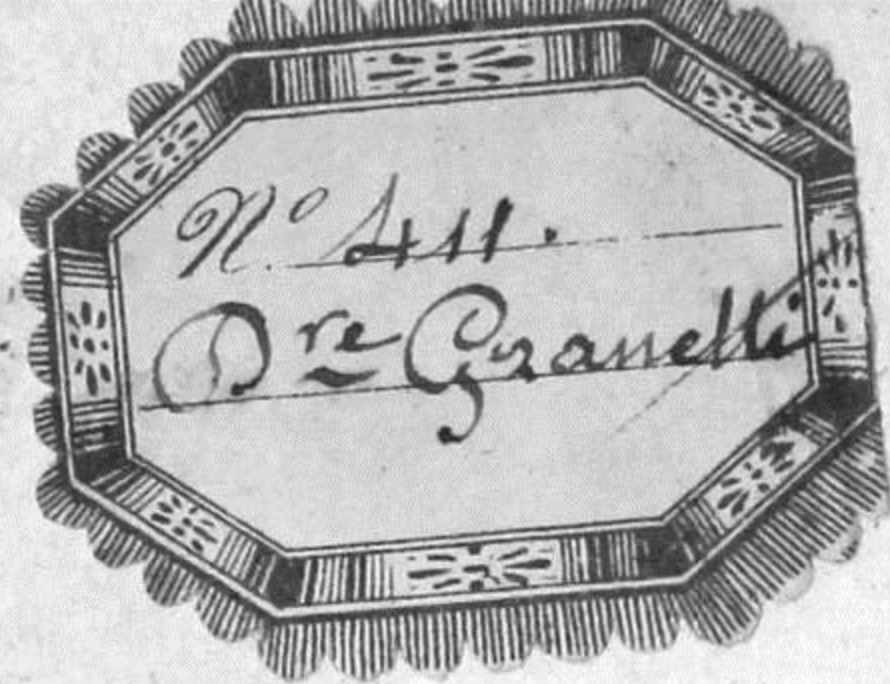 Nº 411.
Dre Granelli